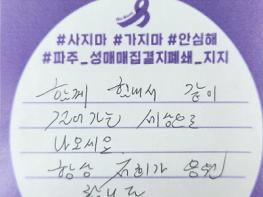 #사지마 #가지마 #안심해
#파주_성매매집결지폐쇄_지지
함께 힘내서 같이
걸어가는 세상으로
나오세요
항상 저희가 응원
합니다